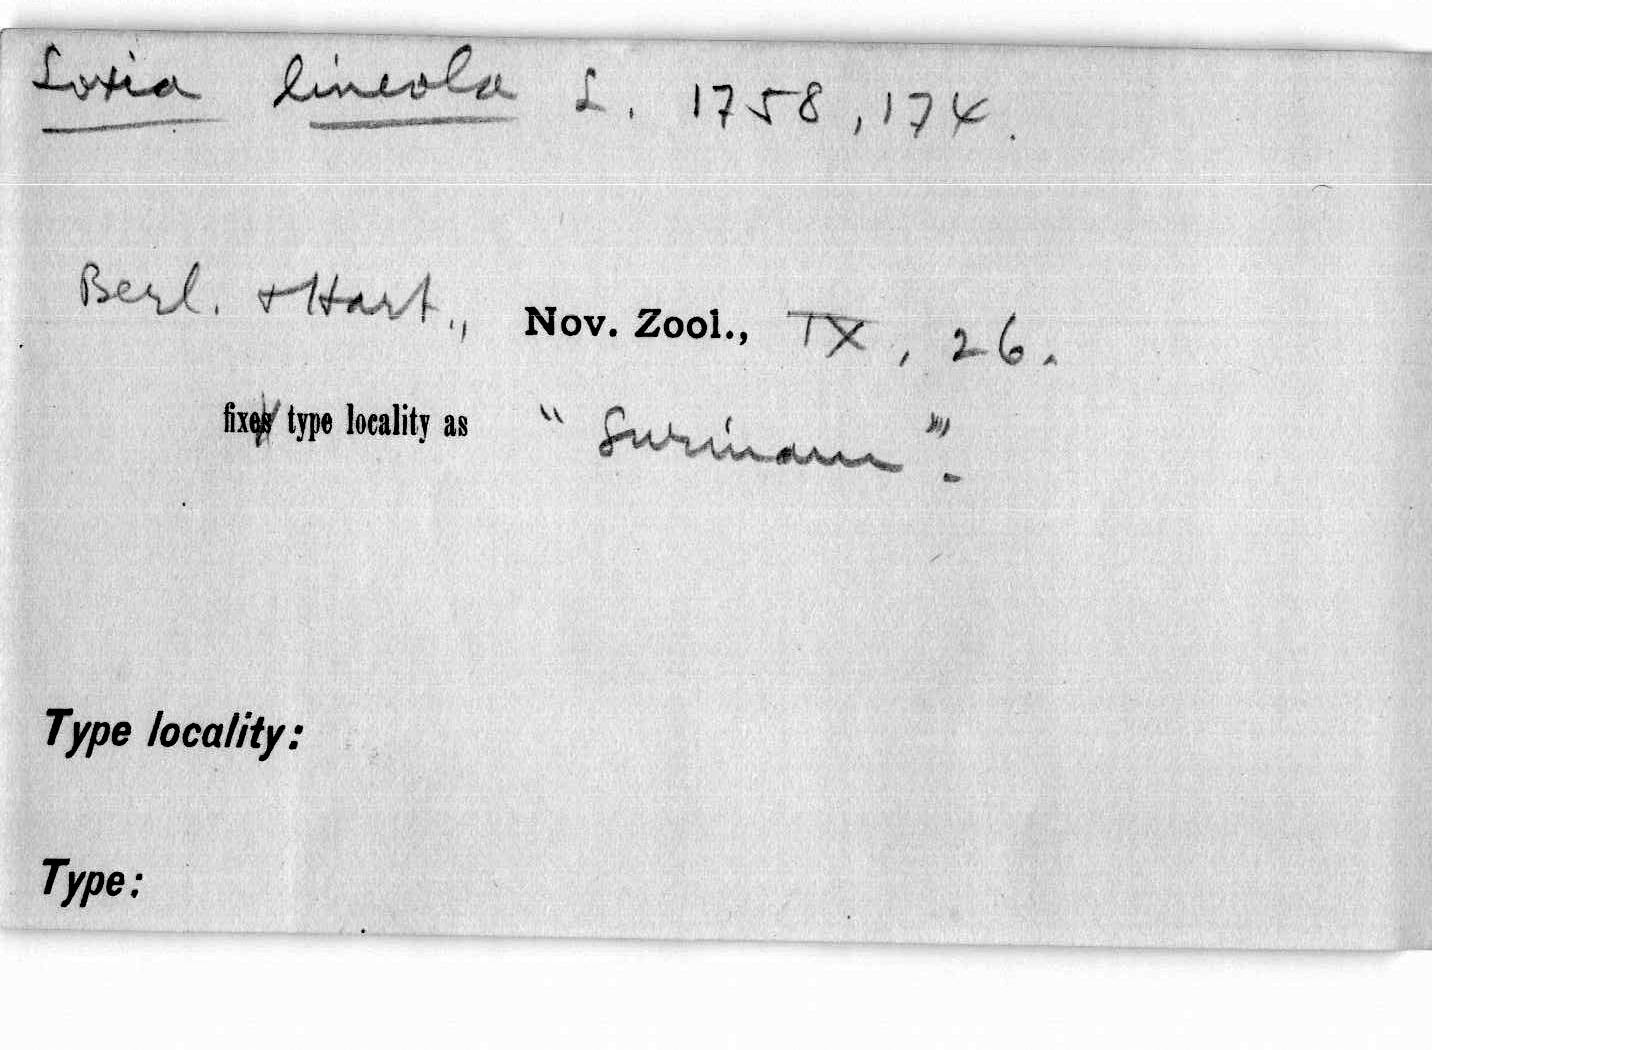 Loxia lineola L. 1758, 174.
Berl. + Hart., Nov. Zool., IX, 26.
fixe type locality as "Surinam".
Type locality:
Type: